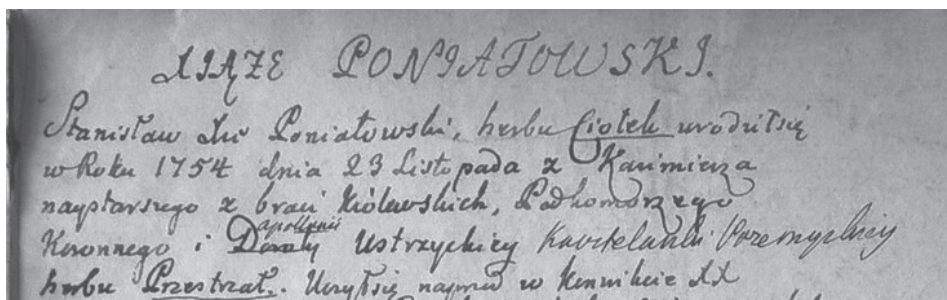 XIĄŻE PONIATOWSKI.
Stanisław Xże Poniatowski, herbu Ciołek urodził się
w Roku 1754 dnia 23 Listopada z Kazimierza
naystarszego z braci Królewskich, Podkomorzego
apollonii
Koronnego i Ustrzyckiey Kasztelanki Przemyslkiey
herbu Przestrzał. Uczył się naprzód w Konwikcie XX